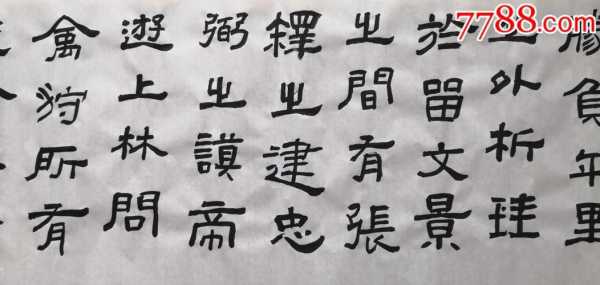 7788.com收藏
勝負年里
之外析珪
於留文景
之間有張
釋之建忠
弼之謨帝
遊上林問
禽狩所有